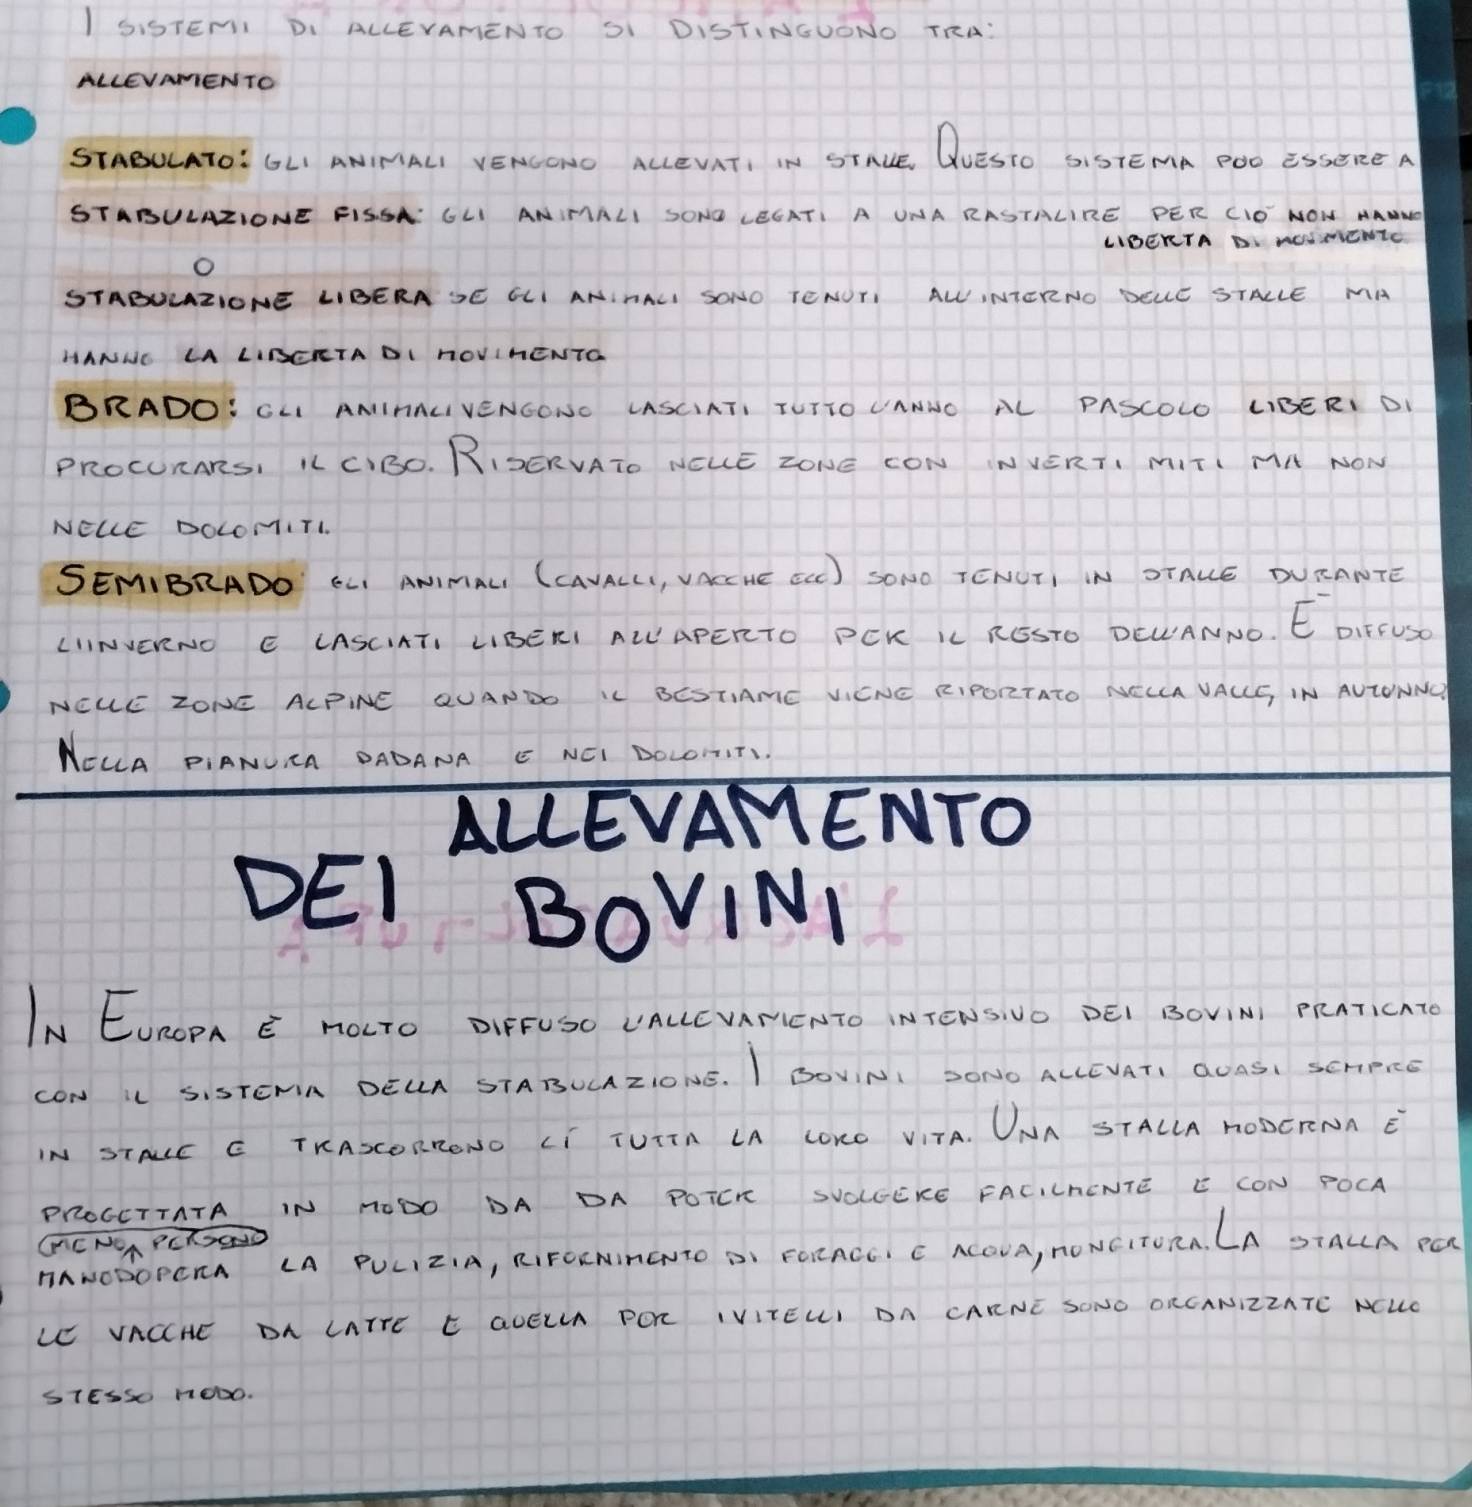 I SISTEMI DI ALLEVAMENTO SI DISTINGUONO TRA:
ALLEVAMENTO
STABULATO: GLI ANIMALI VENGONO ALLEVATI IN STALLE. QUESTO SISTEMA PUO ESSERE A
STABULAZIONE FISSA: GLI ANIMALI SONO LEGATI A UNA RASTALIRE PER CIO' NON HANNO
LIBERTA DI MOVIMENTO
O
STABULAZIONE LIBERA SE GLI ANIMALI SONO TENUTI ALL'INTERNO DELLE STALLE MA
HANNO LA LIBERTA DI MOVIMENTO
BRADO: GLI ANIMALI VENGONO LASCIATI TUTTO L'ANNO AL PASCOLO LIBERI DI
PROCURARSI IL CIBO. RISERVATO NELLE ZONE CON INVERTI MITI MA NON
NELLE DOLOMITI.
SEMIBRADO GLI ANIMALI (CAVALLI, VACCHE ECC) SONO TENUTI IN STALLE DURANTE
L'INVERNO E LASCIATI LIBERI ALL'APERTO PER IL RESTO DELL'ANNO. È DIFFUSO
NELLE ZONE ALPINE QUANDO IL BESTIAME VIENE RIPORTATO NELLA VALLE, IN AUTUNNO
NELLA PIANURA PADANA E NEI DOLOMITI.
ALLEVAMENTO
DEI BOVINI
IN EUROPA È MOLTO DIFFUSO L'ALLEVAMENTO INTENSIVO DEI BOVINI PRATICATO
CON IL SISTEMA DELLA STABULAZIONE. I BOVINI SONO ALLEVATI QUASI SEMPRE
IN STALLE E TRASCORRONO LÌ TUTTA LA LORO VITA. UNA STALLA MODERNA È
PROGETTATA IN MODO DA DA POTER SVOLGERE FACILMENTE E CON POCA
MENO PERSONE
MANODOPERA LA PULIZIA, RIFORNIMENTO DI FORAGGI E ACQUA, MUNGITURA. LA STALLA PER
LE VACCHE DA LATTE E QUELLA PER I VITELLI DA CARNE SONO ORGANIZZATE NELLO
STESSO MODO.